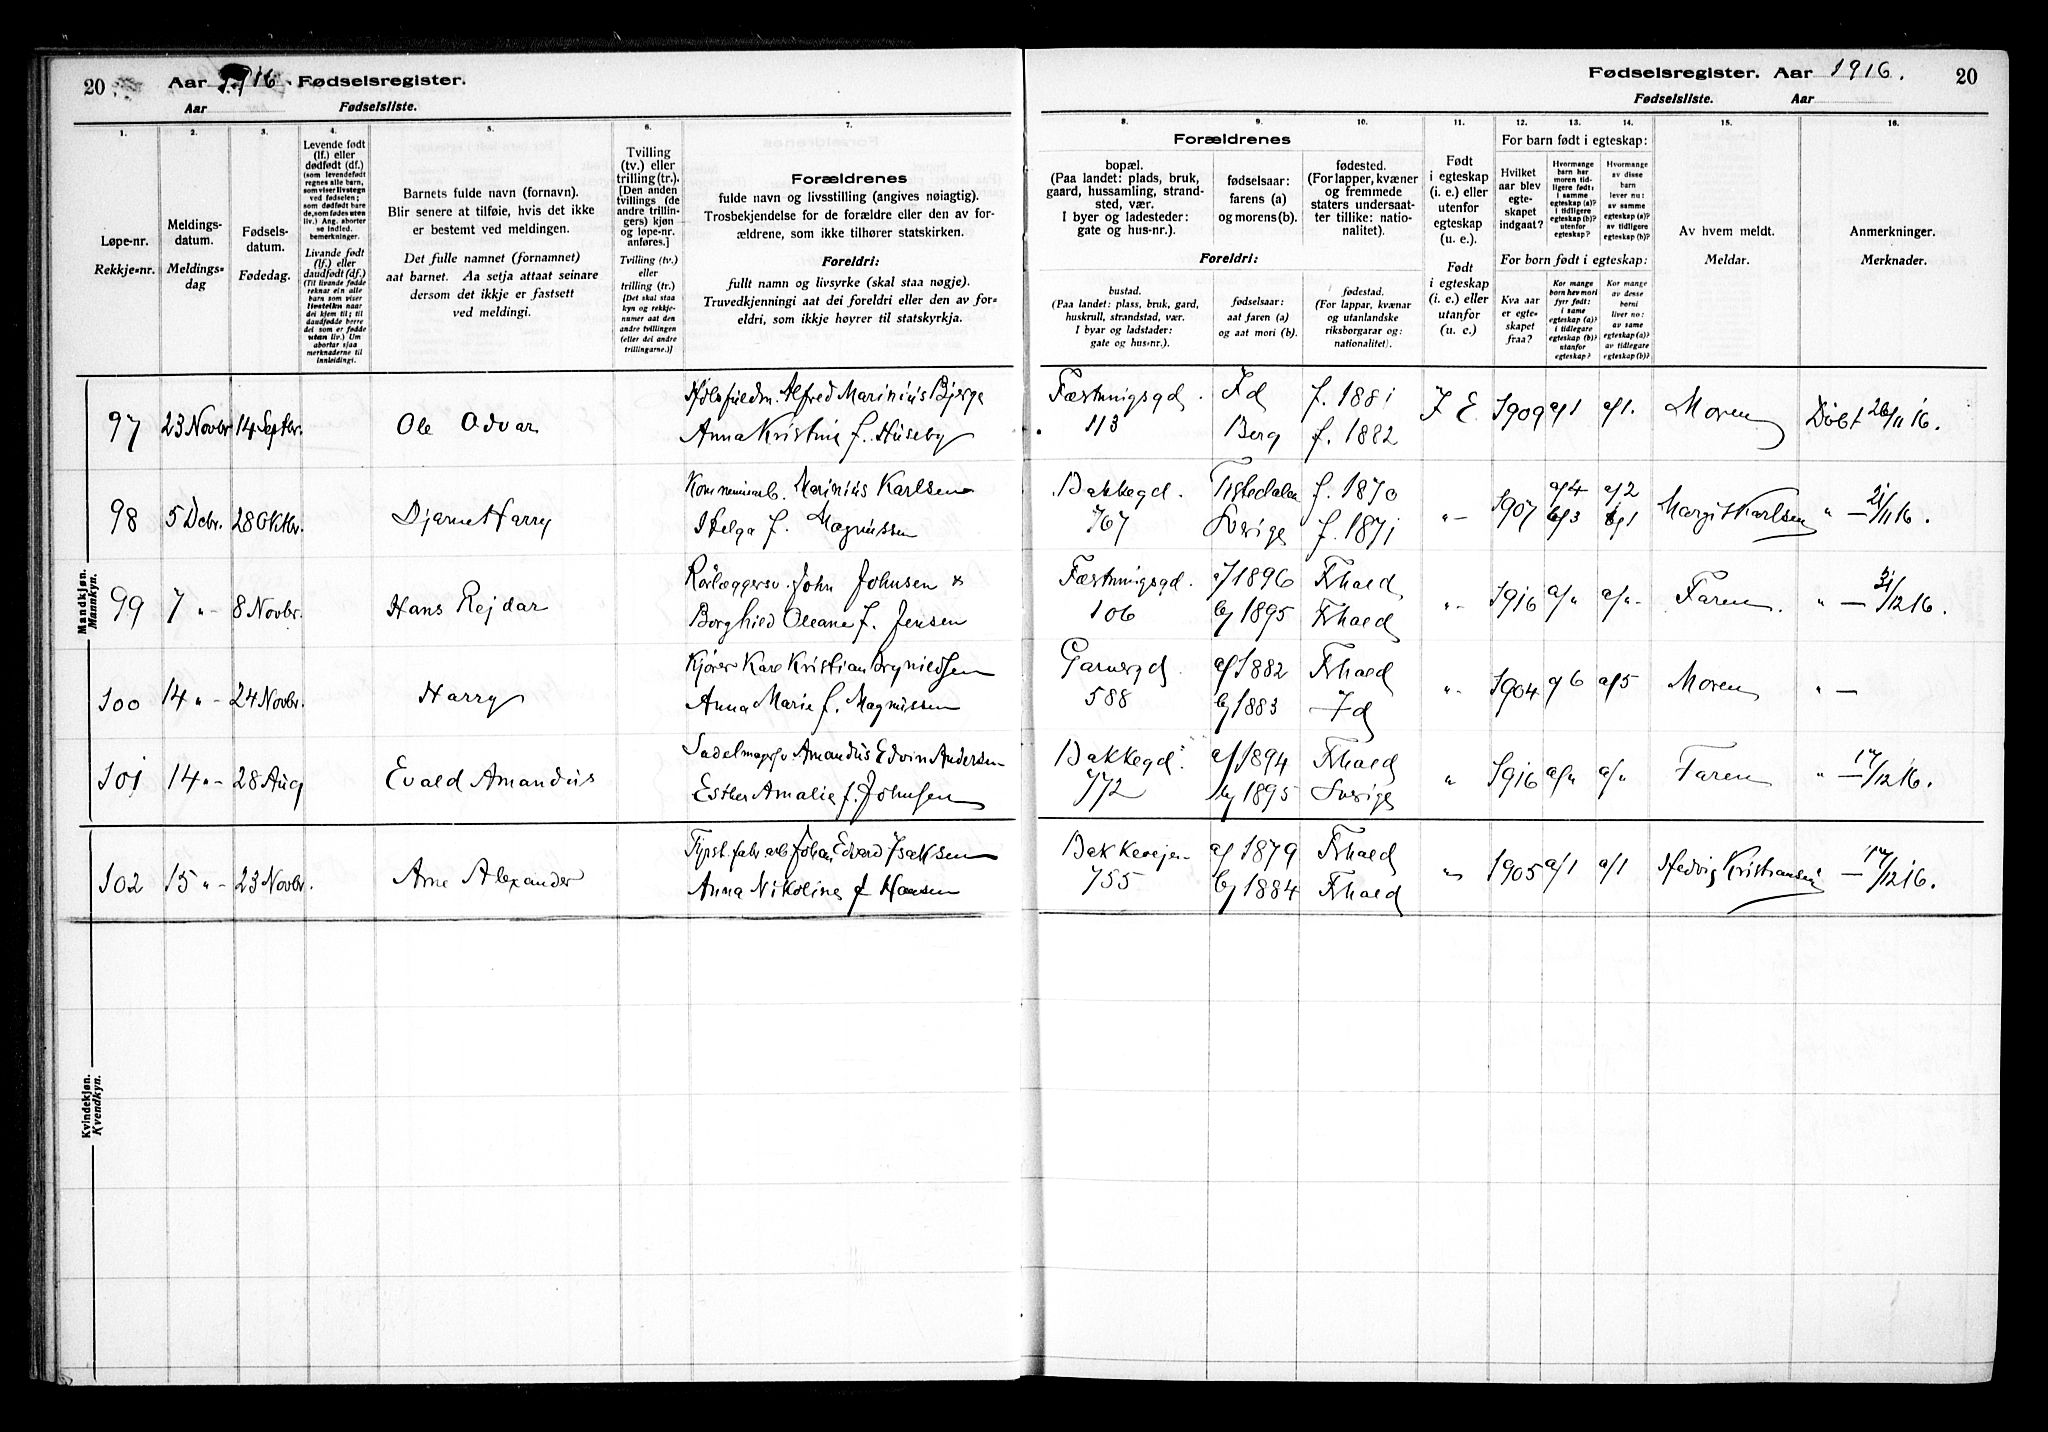 20 Aar 1916. Fødselsregister.
Aar Fødselsliste.
Fødselsregister. Aar 1916. 20
Fødselsliste. Aar
1. 2. 3. 4. 5. 6. 7.
Løpe-nr.
Rekkje-nr.
Meldings-
datum.
Meldings-
dag
Fødsels-
datum.
Fødedag.
Levende født
(lf.) eller
dødfødt (df.)
(som levendefødt
regnes alle barn,
som viser livstegn
ved fødselen;
som dødfødt bare
de, som fødes uten
liv.) Ang. aborter
se indled.
bemerkninger.
Livande født
(lf.) eller
daudfødt (df.)
(Til livande fødde
reknar ein alle
barn som viser
livsteikn naar
dei kjem til; til
daudfødde berre
dei som er fødde
utan liv.) Um
abortar sjaa
merknaderne til
innleidingi.
Barnets fulde navn (fornavn).
Blir senere at tilføie, hvis det ikke
er bestemt ved meldingen.
Det fulle namnet (fornamnet)
aat barnet. Aa setja attaat seinare
dersom det ikkje er fastsett
ved meldingi.
Tvilling
(tv.) eller
trilling (tr.).
[Den anden
tvillings (de
andre trillin-
gers) kjøn
og løpe-nr.
anføres.]
Tvilling (tv.)
eller
trilling (tr.)
[Det skal staa
kyn og rekkje-
numer aat den
andre tvillingen
(eller dei andre
trillingarne.)]
Forældrenes
fulde navn og livsstilling (angives nøiagtig).
Trosbekjendelse for de forældre eller den av for-
ældrene, som ikke tilhører statskirken.
Foreldri:
fullt namn og livsyrke (skal staa nøgje).
Truvedkjenningi aat dei foreldri eller den av for-
eldri, som ikkje høyrer til statskyrkja.
8. 9. 10. 11. 12. 13. 14. 15. 16.
Forældrenes
bopæl.
(Paa landet: plads, bruk,
gaard, hussamling, strand-
sted, vær.
I byer og ladesteder:
gate og hus-nr.).
fødselsaar:
farens (a)
og morens (b).
fødested.
(For lapper, kvæner
og fremmede
staters undersaat-
ter tillike: natio-
nalitet).
Foreldri:
bustad.
(Paa landet: plass, bruk, gard,
huskrull, strandstad, vær.
I byar og ladstader:
gate og hus-nr.).
fødselsaar:
aat faren (a)
og aat mori (b).
fødestad.
(For lappar, kvænar
og utanlandske
riksborgarar og:
nationalitet).
Født
i egteskap
(i. e.) eller
utenfor
egteskap
(u. e.).
Født
i egteskap
(i. e.) eller
utanfor
(u. e.)
For barn født i egteskap:
Hvilket
aar blev
egte-
skapet
indgaat?
Hvormange
barn har
moren tid-
ligere født:
i samme
egteskap (a)?
i tidligere
egteskap (b)?
utenfor
egteskap ?
Hvormange
av disse
barn
lever nu:
av samme
egteskap (a)?
av tidligere
egteskap (b)?
For born født i egteskap:
Kva aar
er egte-
skapet
fraa?
Kor mange
born hev mori
fyrr født:
i same
egteskap (a)?
i tidlegare
egteskap (b)?
utanfor
egteskap?
Kor mange
av desse
borni
liver no:
av same
egteskap (a)?
av tidlegare
egteskap (b)?
Av hvem meldt.
Meldar.
Anmerkninger.
Merknader.
Mandkjøn.
Mannkyn.
97 23 Novbr. 14 Septbr. Ole Odvar Alfred Marinius Bjerge
Anna Kristine f. Huseby
Fæstningsgd. 113 Id Berg f. 1881 f. 1882 I E. 1909 a/1 a/1. Moren Døbt 26/11 16.
98 5 Debr. 28 Oktbr. Bjarne Harry Marinius Karlsen
Helga f. Magnussen
Bakkegd. 767 Tistedalen Sverige f. 1870 f. 1871 "- 1907 a/4 b/3 a/2 b/1 Margit Karlsen " —
99 7 "- 8 Novbr. Hans Rejdar Rørlæggersv. John Johnsen &
Borghild Oleane f. Jensen
Fæstningsgd. 106 a/1896 b/1895 Frhald Frhald "- 1916 a/" a/"- Faren. " — 31/12 16.
100 14 "- 24 Novbr. Harry Kjører Karl Kristian Brynildsen
Anna Marie f. Magnussen
Garvergd. 588 a/1882 b/1883 Frhald Id "- 1904 a/6 a/5 Moren " —
101 14 "- 28 Aug Evald Amandus Sadelmagersv Amandus Edvin Andersen
Esther Amalie f. Johnsen
Bakkegd. 772 a/1894 b/1895 Frhald Sverige " 1916 a/" a/" Faren " — 17/12 16.
102 15 "- 23 Novbr. Arne Alexander Fyrst. fabr arb Johan Edvard Isaksen
Anna Nikoline f Hansen
Bakkevejen 755 a/1879 b/1884 Frhald Frhald "- 1905 a/1 a/1 Hedvig Kristiansen " — 17/12 16.
Kvindekjøn.
Kvendkyn.